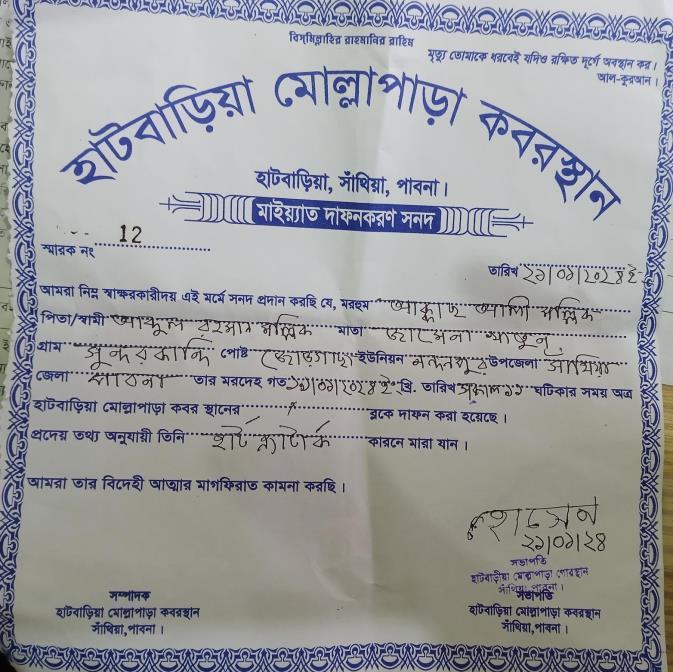 বিসমিল্লাহির রাহমানির রাহিম
মৃত্যু তোমাকে ধরবেই যদিও রক্ষিত দূর্গে অবস্থান কর।
আল-কুরআন।
হাটবাড়িয়া মোল্লাপাড়া কবরস্থান
হাটবাড়িয়া, সাঁথিয়া, পাবনা।
মাইয়্যাত দাফনকরণ সনদ
স্মারক নং 12
তারিখ ২১/০১/২০২৪ ই
আমরা নিম্ন স্বাক্ষরকারীদয় এই মর্মে সনদ প্রদান করছি যে, মরহুম আক্কাছ আলী মল্লিক
পিতা/স্বামী রহমান মল্লিক মাতা খাতুন
গ্রাম সুন্দরকান্দি পোষ্ট জোড়গাছা ইউনিয়ন উপজেলা সাঁথিয়া
জেলা পাবনা তার মরদেহ গত ২১/০১/২০২৪ ই খ্রি. তারিখ সকাল ১১ ঘটিকার সময় অত্র
হাটবাড়িয়া মোল্লাপাড়া কবর স্থানের ব্লকে দাফন করা হয়েছে।
প্রদেয় তথ্য অনুযায়ী তিনি হার্ট কারনে মারা যান।
আমরা তার বিদেহী আত্মার মাগফিরাত কামনা করছি।
হোসেন
২১/০১/২৪
সভাপতি
হাটবাড়ীয়া মোল্লাপাড়া গোরস্থান
সাঁথিয়া, পাবনা।
সম্পাদক
হাটবাড়িয়া মোল্লাপাড়া কবরস্থান
সাঁথিয়া, পাবনা।
সভাপতি
হাটবাড়িয়া মোল্লাপাড়া কবরস্থান
সাঁথিয়া, পাবনা।